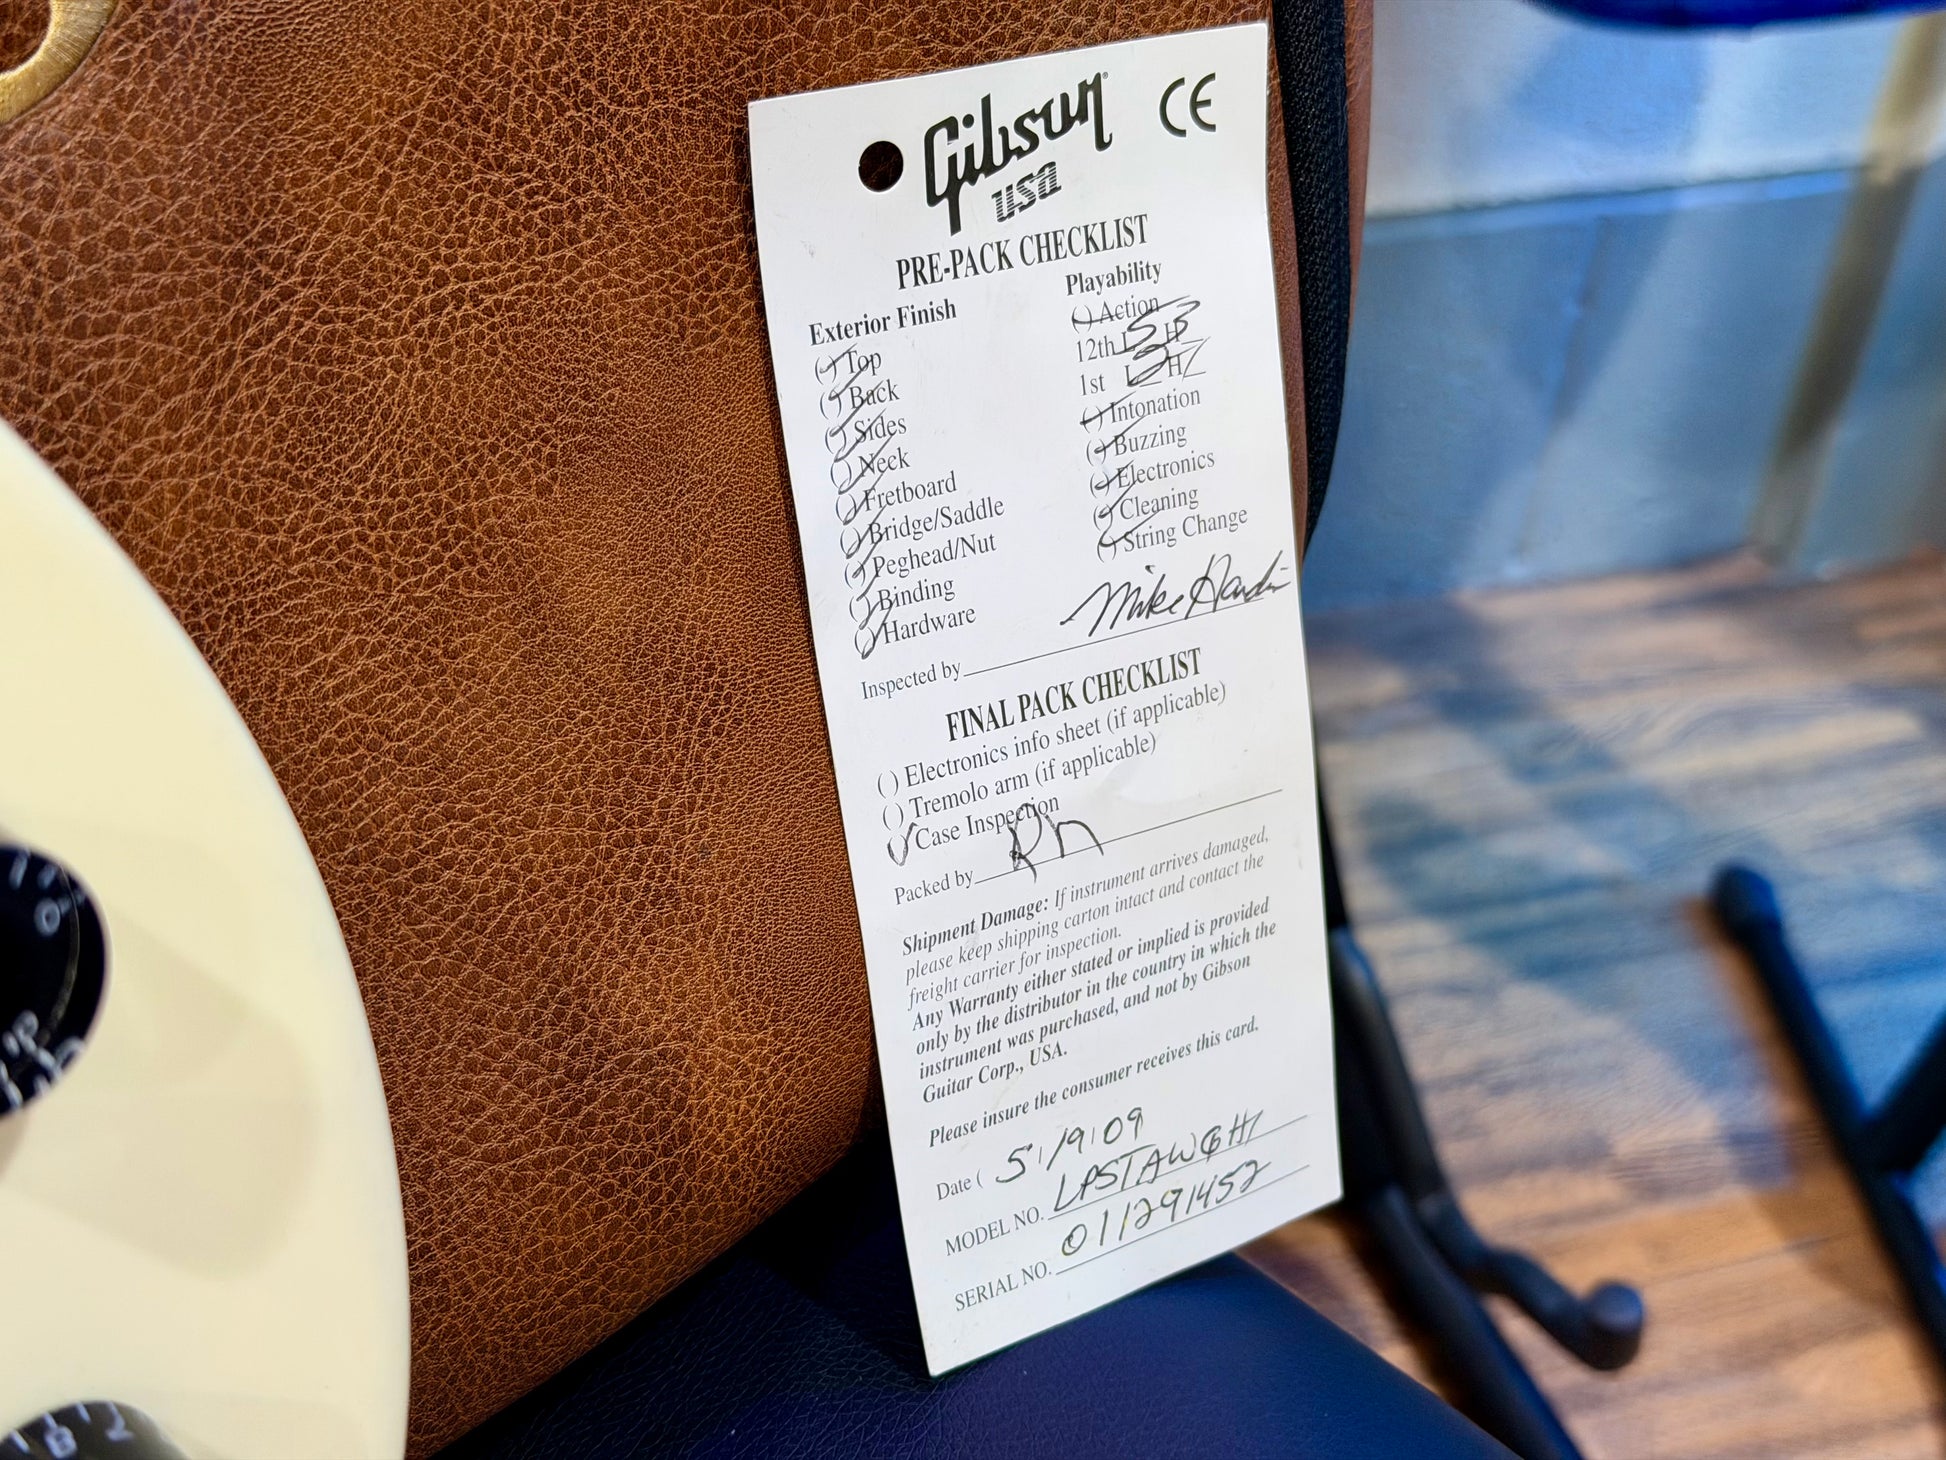 Gibson® CE
USA
PRE-PACK CHECKLIST
Exterior Finish
(✓) Top
(✓) Back
(✓) Sides
(✓) Neck
(✓) Fretboard
(✓) Bridge/Saddle
(✓) Peghead/Nut
(✓) Binding
(✓) Hardware
Playability
(✓) Action
12th L 5 H 3
1st L 2 H 1
(✓) Intonation
(✓) Buzzing
(✓) Electronics
(✓) Cleaning
(✓) String Change
Inspected by Mike
FINAL PACK CHECKLIST
( ) Electronics info sheet (if applicable)
( ) Tremolo arm (if applicable)
(✓) Case Inspection
Packed by
Shipment Damage: If instrument arrives damaged,
please keep shipping carton intact and contact the
freight carrier for inspection.
Any Warranty either stated or implied is provided
only by the distributor in the country in which the
instrument was purchased, and not by Gibson
Guitar Corp., USA.
Please insure the consumer receives this card.
Date ( 5/19/09
MODEL NO. LPSTAWGH1
SERIAL NO. 011291452